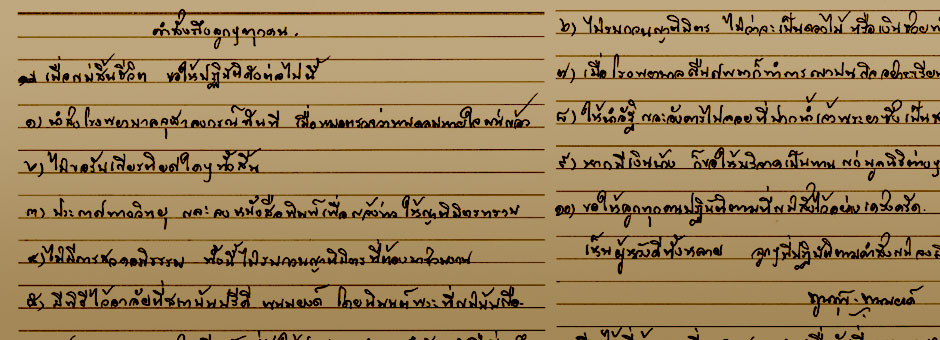 คำสั่งถึงลูกๆทุกคน.
เมื่อพ่อสิ้นชีวิต ขอให้ปฏิบัติดังต่อไปนี้
๑) นำส่งโรงพยาบาลจุฬาลงกรณ์ทันที เมื่อหมอตรวจว่าหมดลมหายใจแน่แล้ว
๒) ไม่ขอรับเกียรติยศใดๆทั้งสิ้น
๓) ประกาศทางวิทยุ และลงหนังสือพิมพ์เพื่อแจ้งข่าว ให้ญาติมิตรทราบ
๔) ไม่มีการสวดอภิธรรม ทั้งนี้ไม่รบกวนญาติมิตรที่ต้องมาร่วมงาน
๕) มีพิธีไว้อาลัยที่สถาบันปรีดี พนมยงค์ โดยนิมนต์พระที่พ่อนับถือ
๖) ไม่รบกวนญาติมิตร ไม่ว่าจะเป็นดอกไม้ หรือเงินช่วย
๗) เมื่อโรงพยาบาลคืนศพมาก็ทำการฌาปนกิจอย่างเรียบ
๘) ให้นำอัฐิ และอังคารไปลอยที่ปากน้ำเจ้าพระยาซึ่งเป็น
๙) หากมีเงินบ้าง ก็ขอให้บริจาคเป็นทาน แก่มูลนิธิต่างๆ
๑๐) ขอให้ลูกทุกคนปฏิบัติตามที่แม่สั่งไว้อย่างเคร่งครัด.
ลูกๆที่ปฏิบัติตามคำสั่งแม่